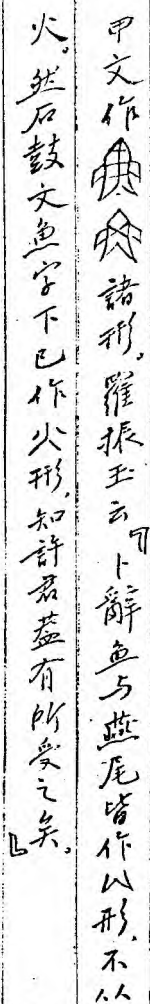 甲文作諸形。羅振玉云『卜辭魚与燕尾皆作形，不从
火。然石鼓文魚字下已作火形，知許君蓋有所受之矣。』